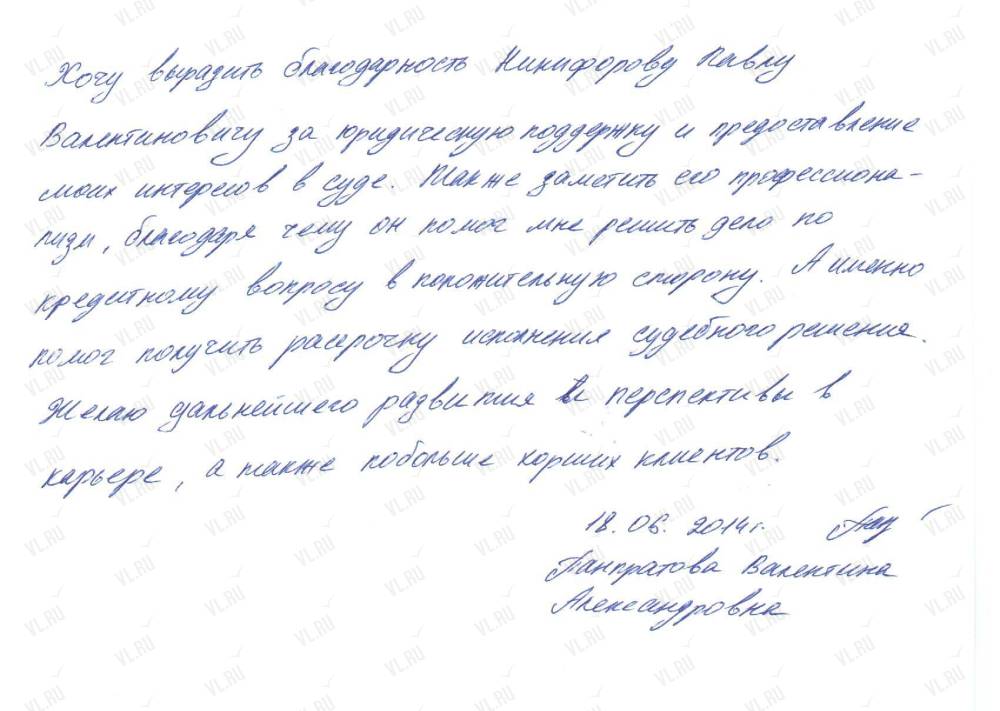 Хочу выразить благодарность Никифорову Павлу
Валентиновичу за юридическую поддержку и предоставление
моих интересов в суде. Также заметить его профессиона-
лизм, благодаря чему он помог мне решить дело по
кредитному вопросу в положительную сторону. А именно
помог получить рассрочку исполнения судебного решения.
Желаю дальнейшего развития и перспективы в
карьере, а также побольше хорших клиентов.
18.06.2014г.
Панкратова Валентина
Александровна
VL.RU